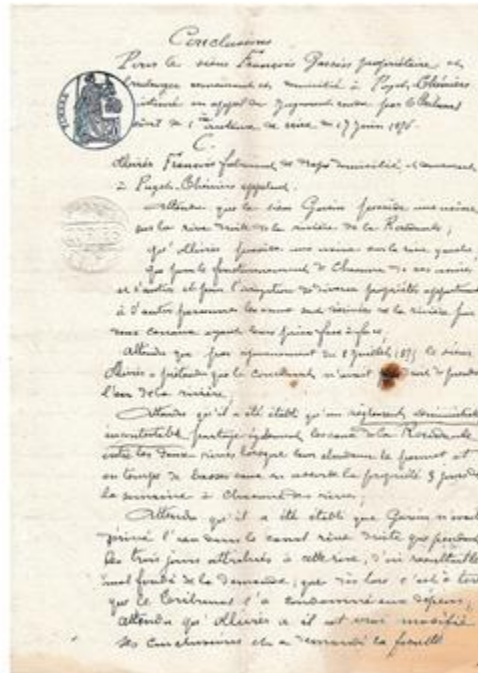 Conclusions
Pour le sieur François propriétaire et
demeurant et domicilié à Puget-Théniers
intimé en appel du jugement rendu par le Tribunal
civil de 1ère instance de du 17 Juin 1876
C.
François fabricant de draps domicilié et demeurant
à Puget-Théniers appelant.
Attendu que le sieur Garcin possède une usine
sur la rive droite de la rivière de la Roudoule;
possède une usine sur la rive gauche,
que pour le fonctionnement de chacune de ces usines
et pour l'irrigation de diverses propriétés appartenant
à d'autres personnes les eaux sont dérivées de la rivière par
deux canaux ayant leurs prises face à face,
Attendu que par du 8 Juillet 1875 le sieur
a prétendu que le concluant n'avait pas droit de prendre
l'eau de la rivière;
Attendu qu'il a été établi qu'un règlement administratif
incontestable partage également les eaux de la Roudoule
entre les deux rives lorsque leur abondance le permet et
en temps de basses eaux en la propriété 3 jours de
la semaine à chacune des rives;
Attendu qu'il a été établi que Garcin n'avait
dérivé l'eau dans le canal rive droite que pendant
les trois jours attribués à cette rive, d'où résultait le
mal fondé de la demande; que dès lors c'est à tort
que le Tribunal l'a condamné aux dépens;
Attendu qu' a il est vrai modifié
ses conclusions et a demandé la faculté